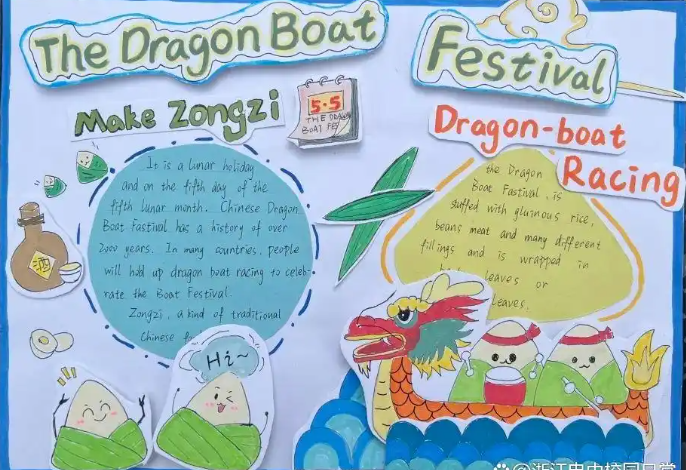 The Dragon Boat
Festival
Make Zongzi
5·5
THE DRAGON
BOAT FE
Dragon-boat
Racing
It is a lunar holiday
and on the fifth day of the
fifth lunar month. Chinese Dragon
Boat Fastival has a history of over
2000 years. In many countries, people
will hold up dragon boat racing to celeb-
rate the Boat Festival.
Zongzi, a kind of traditional
Chinese
the Dragon
Boat Fastival, is
stuffed with glutinous rice,
beans meat and many different
fillings and is wrapped in
leaves or
leaves.
酒
Hi~